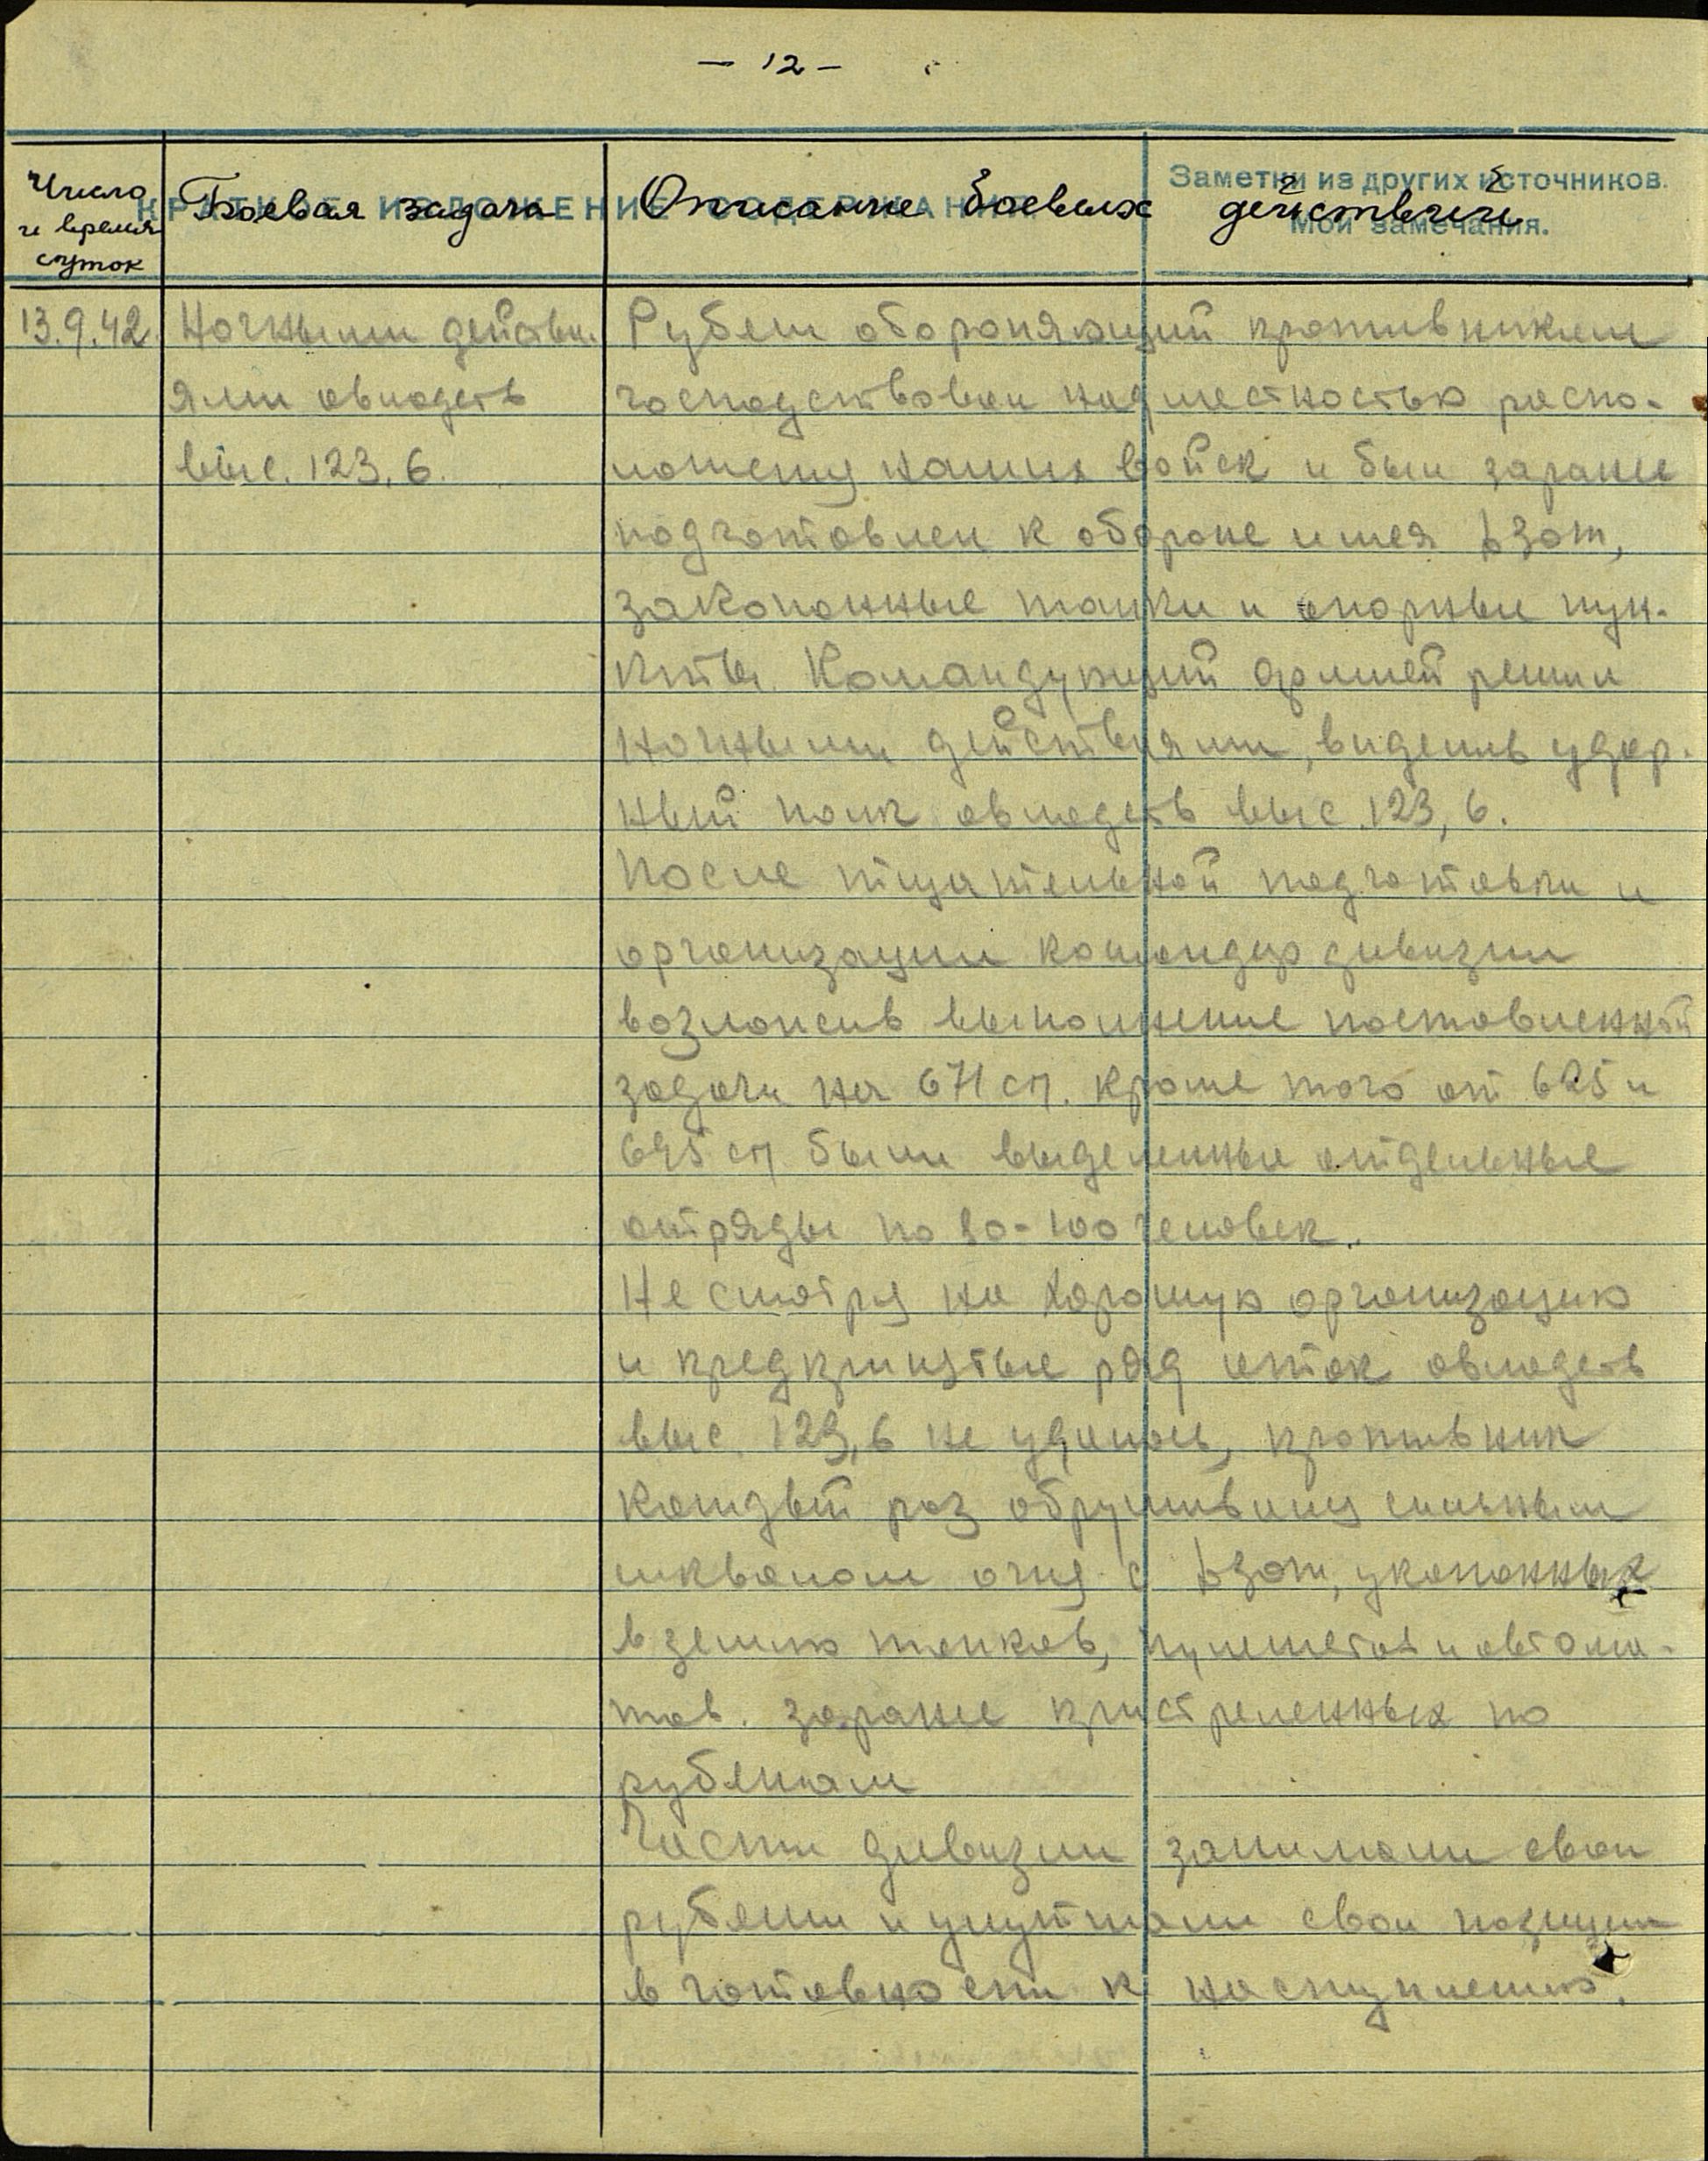 - 12 -
Число и время суток
Боевая задача
Описание боевых действий
Заметки из других источников.
Мои замечания.
13.9.42.
Ночными действи
ями овладеть
выс. 123,6.
Рубеж обороняющий противником
господствовал над местностью распо-
ложения наших войск и был заранее
подготовлен к обороне имея Дзот,
закопанные танки и опорные пун-
кты. Командующий армией решил
ночными действиями, виделив удар-
ный полк овладеть выс. 123,6.
После тщательной подготовки и
организации командир дивизии
возложив выполнение поставленной
задачи на 671 сп. Кроме того от 625 и
695 сп были выделенные отдельные
отряды по 80-100 человек.
Не смотря на хорошую организацию
и предпринятые ряд атак овладеть
выс 123,6 не удалось, противник
каждый раз обрушивался сильным
шквалом огня с Дзот, укопанных
в землю танков, пулеметов и автома-
тов. заранее пристреленных по
рубежам
Части дивизии занимали свои
рубежи и улутшали свои позиции
в готовности к наступлению.